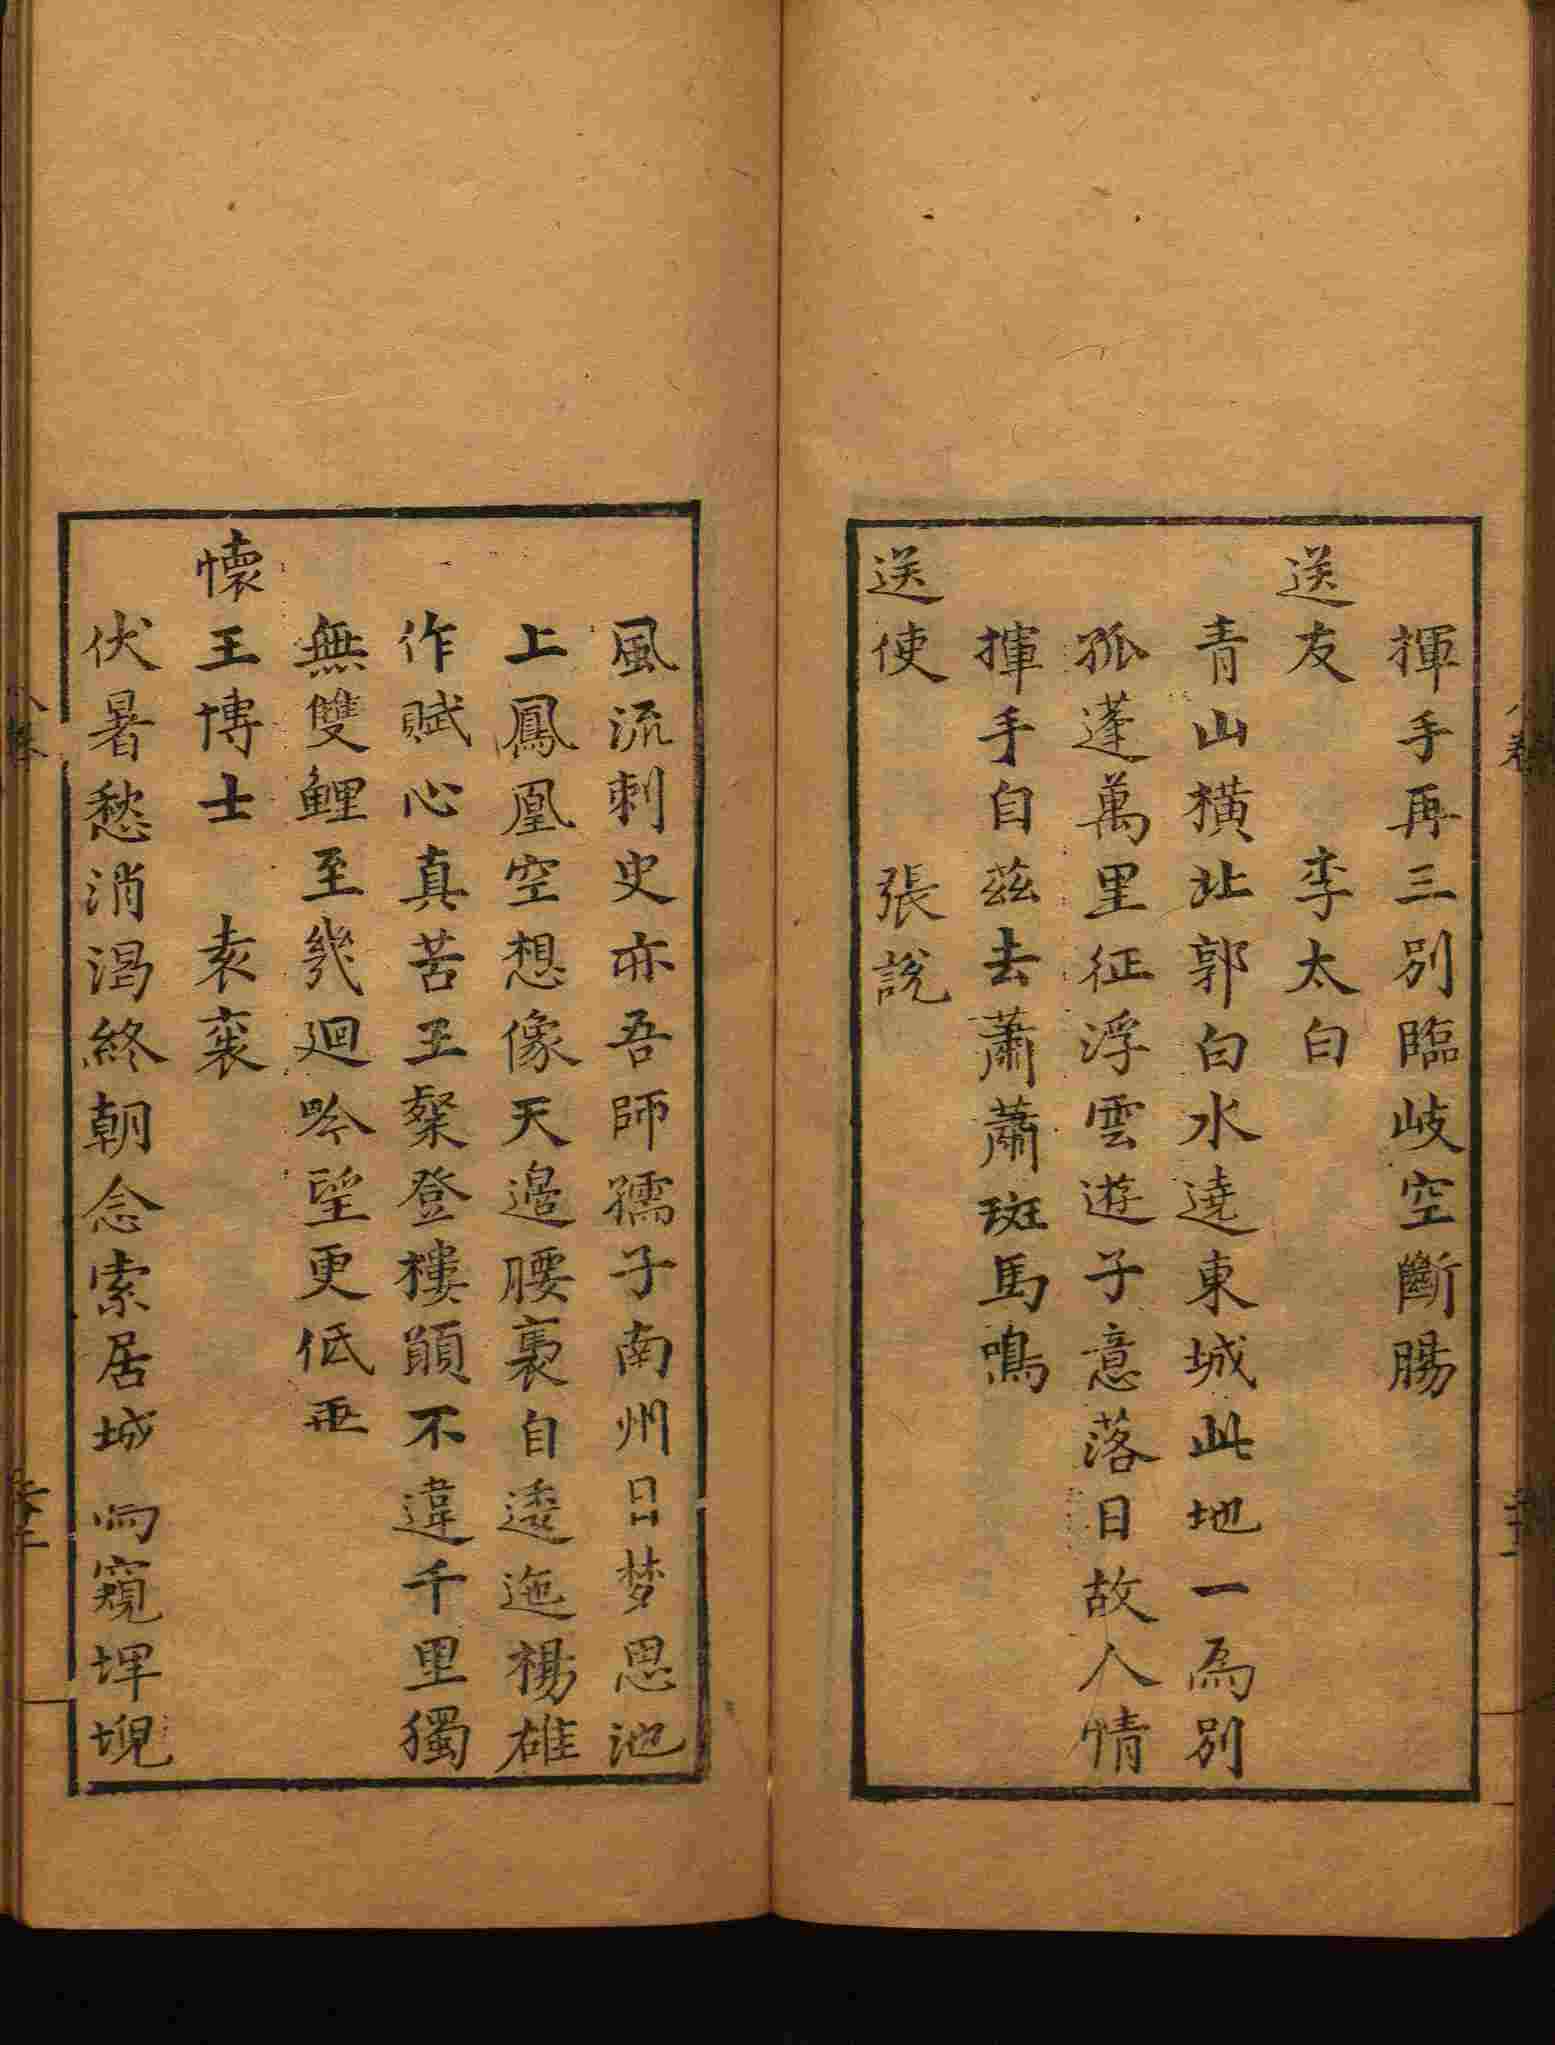 揮手再三別臨岐空斷腸
送友　李太白
青山橫北郭白水遶東城此地一為別
孤蓬萬里征浮雲遊子意落日故人情
揮手自茲去蕭蕭斑馬鳴
送使　張說
風流刺史亦吾師孺子南州日夢思池
上鳳凰空想像天邊腰裹自逶迤楊雄
作賦心真苦王粲登樓願不違千里獨
無雙鯉至幾迴吟望更低垂
懷王博士　袁袠
伏暑愁消渴終朝念索居城向窺埤堄